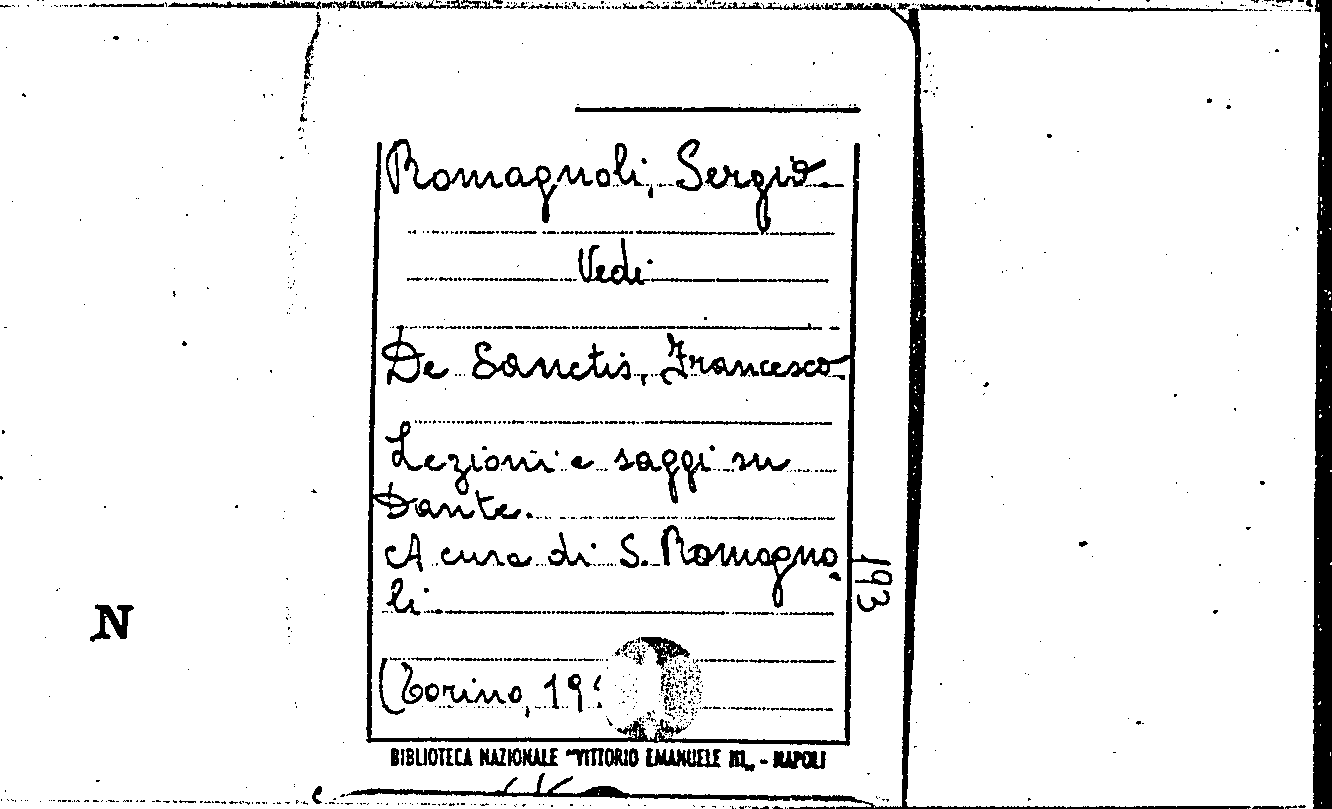 Romagnoli, Sergio
Vedi
De Sanctis, Francesco
Lezioni e saggi su
Dante.
A cura di S. Romagno
li.
193
N
(Torino, 19
BIBLIOTECA NAZIONALE "VITTORIO EMANUELE III„ - NAPOLI